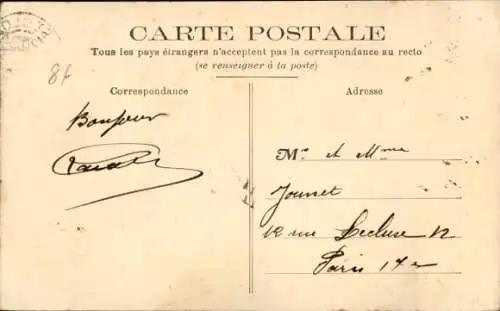 CARTE POSTALE
Tous les pays étrangers n'acceptent pas la correspondance au recto
(se renseigner à la poste)
8f
Correspondance
Adresse
Bonjour
Mr et Mme
Journet
12 rue Lecluse 12
Paris 17e